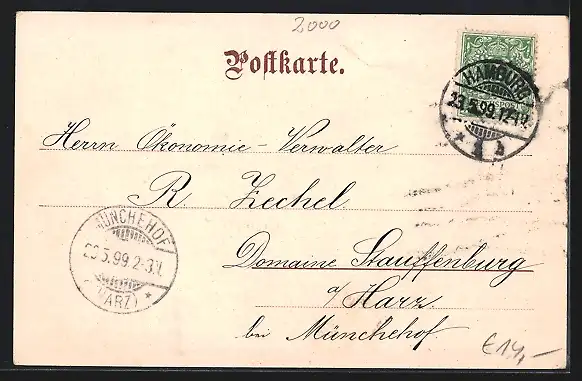 2000
Postkarte.
HAMBURG
23.5.99.12-1V.
Herrn Ökonomie-Verwalter
R. Zechel
MÜNCHEHOF
23.5.99.2-3N.
(HARZ)
Domaine Stauffenburg
a/Harz
bei Münchehof.
€14,-